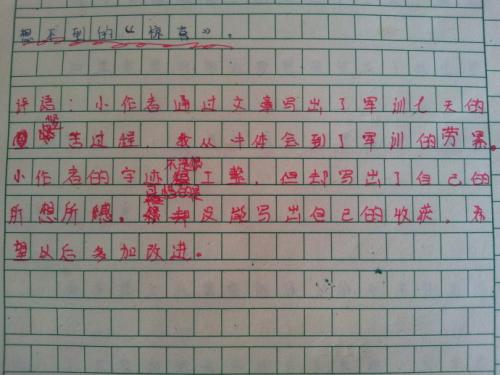 想不到的“惊喜”。
评语：小作者通过文章写出了军训七天的
苦过程，我从中体会到了军训的劳累。
小作者的字迹不是很工整，但却写出了自己的
所想所感。可惜的是没能写出自己的收获。希
望以后多加改进。